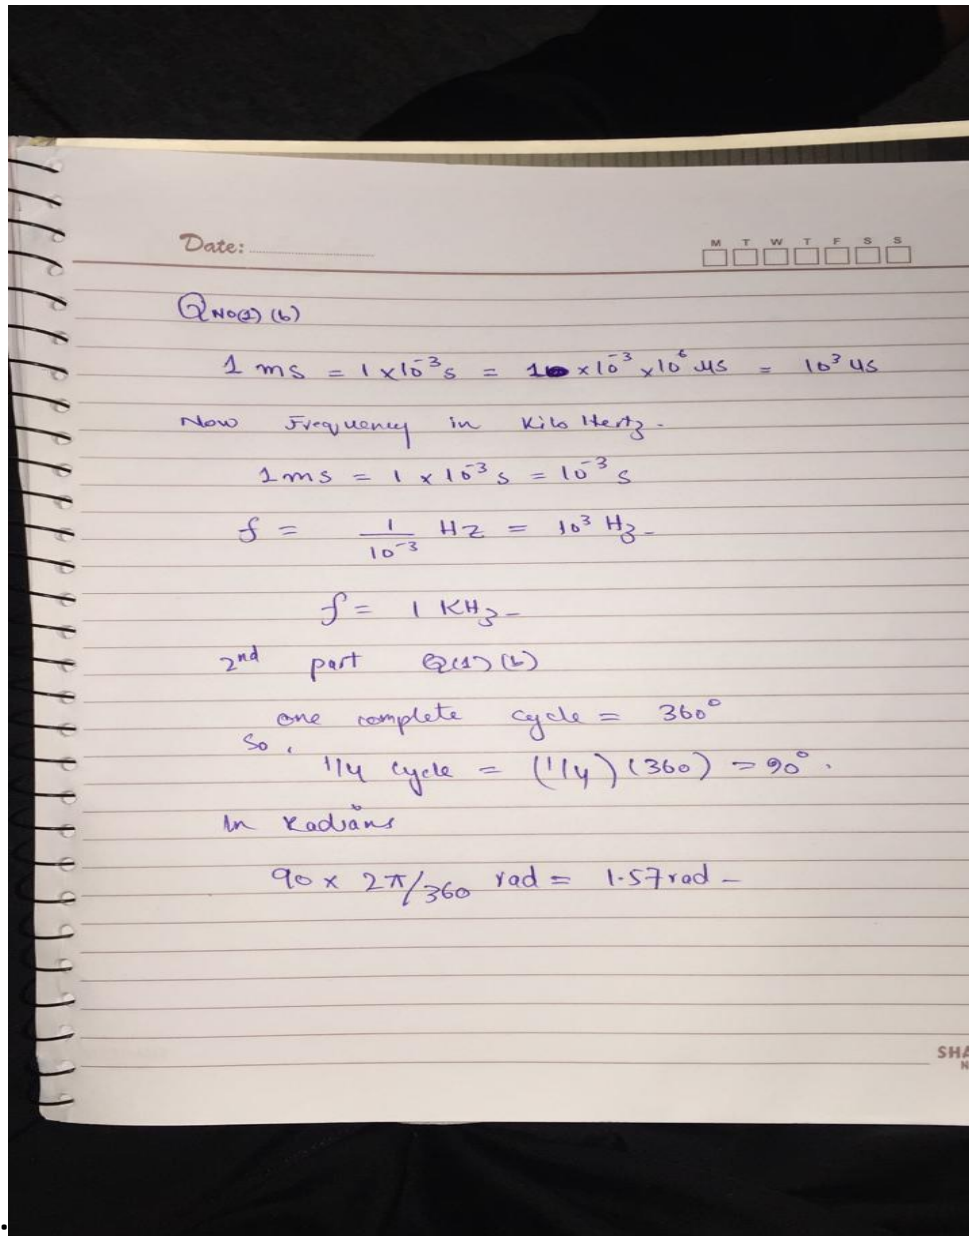 Date:
M T W T F S S
Q No(1) (b)
1 ms = 1 x 10⁻³ s = 1 x 10⁻³ x 10⁶ us = 10³ us
Now Frequency in Kilo Hertz.
1 ms = 1 x 10⁻³ s = 10⁻³ s
f = 1/10⁻³ HZ = 10³ Hz-
f = 1 KHz-
2nd part Q(1) (b)
one complete cycle = 360°
So,
1/4 cycle = (1/4) (360) = 90°.
In Radians
90 x 2π/360 rad = 1.57 rad -
SHA
N